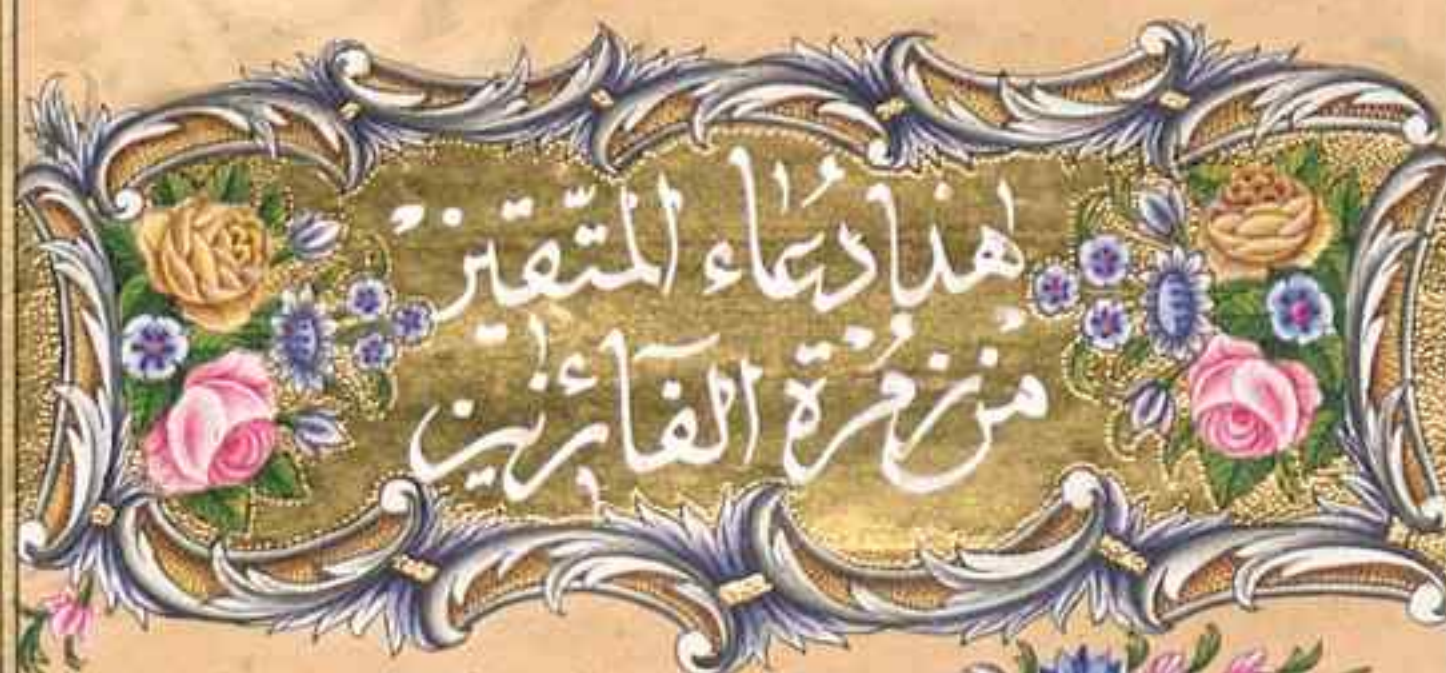 هٰذا دُعاء المتّقين
من زُمرة الفآئزين